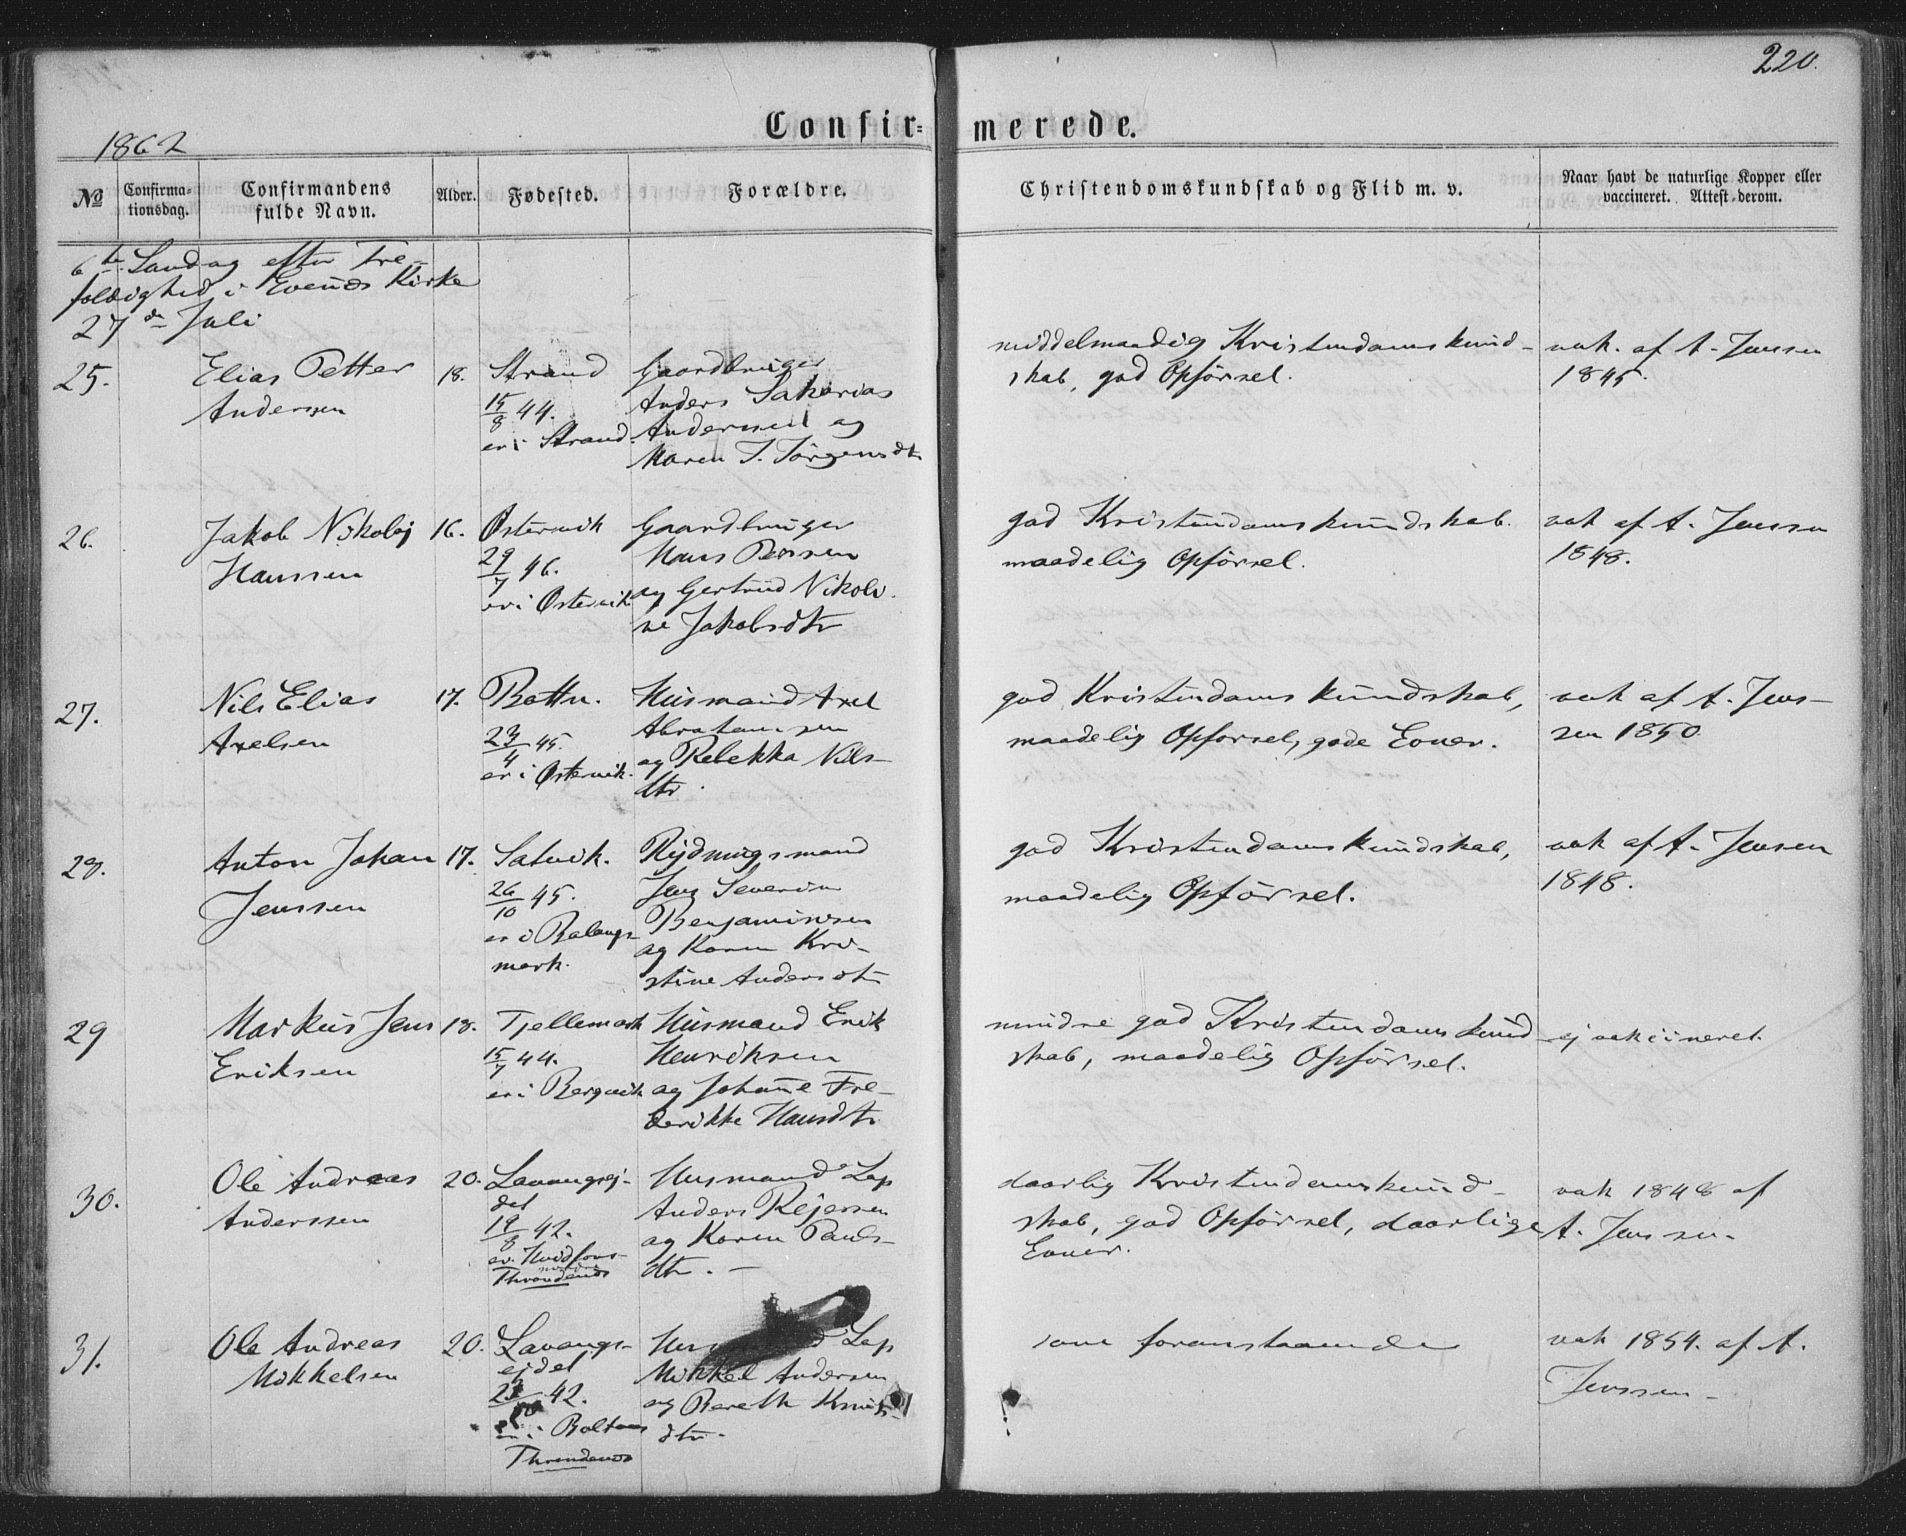 220.
Confir= merede.
1862
No
Confirma=
tionsdag.
Confirmandens
fulde Navn.
Alder.
Fødested.
Forældre.
Christendomskundskab og Flid m. v.
Naar havt de naturlige Kopper eller
vaccineret. Attest derom.
6te Søndag efter Tre-
foldighed i Evenæs Kirke
27de Juli
25.
Elias Petter
Anderssen
18.
Strand
15/8 44.
er i Strand.
Gaardbruger
Anders Sakarias
Anderssen og
Maren J. Jørgensdtr
middelmaadig Kristendomskund-
skab, god Opførsel.
vak. af A. Jenssen
1845.
26.
Jakob Nikolaj
Hanssen
16.
Østervik
29/7 46.
er i Østervik
Gaardbruger
Hans Perssen
og Gertrud Nikoli-
ne Jakobsdtr
god Kristendomskundskab.
maadelig Opførsel.
vak af A. Jenssen
1848.
27.
Nils Elias
Axelsen
17.
Botten.
23/4 45.
er i Østervik.
Husmand Axel
Abrahamsen
og Rebekka Nils-
dtr.
god Kristendomskundskab,
maadelig Opførsel, gode Evner.
vak af A. Jens-
sen 1850
28.
Anton Johan
Jenssen
17.
Satvik.
26/10 45.
er i Balangs-
mark.
Rydningsmand
Jens Severin
Benjaminsen
og Karen Kri-
stine Andersdtr
god Kristendomskundskab,
maadelig Opførsel.
vak af A. Jensen
1848.
29
Markus Jens
Eriksen
18.
Tjellemark
15/7 44.
er i Bergvik
Husmand Erik
Henriksen
og Johanne Fre-
derikke Hansdtr
mindre god Kristendomskund-
skab, maadelig Opførsel.
ej vakcineret.
30.
Ole Andreas
Anderssen
20.
Lavangsej-
det
19/8 42.
Throndenæs
Husmand Lap
Anders Rejersen
og Karen Pauls-
dtr. -
daarlig Kristendomskund-
skab, god Opførsel, daarlige
Evner.
vak 1848 af
A. Jenssen.
31.
Ole Andreas
Mikkelsen
20.
Lavangs-
ejdet
42.
er i Boltaas
Throndenæs
Husmand Lap
Mikkel Andersen
og Bereth Knuts-
dtr.
som foranstaaende
vak 1854. af A.
Jenssen -